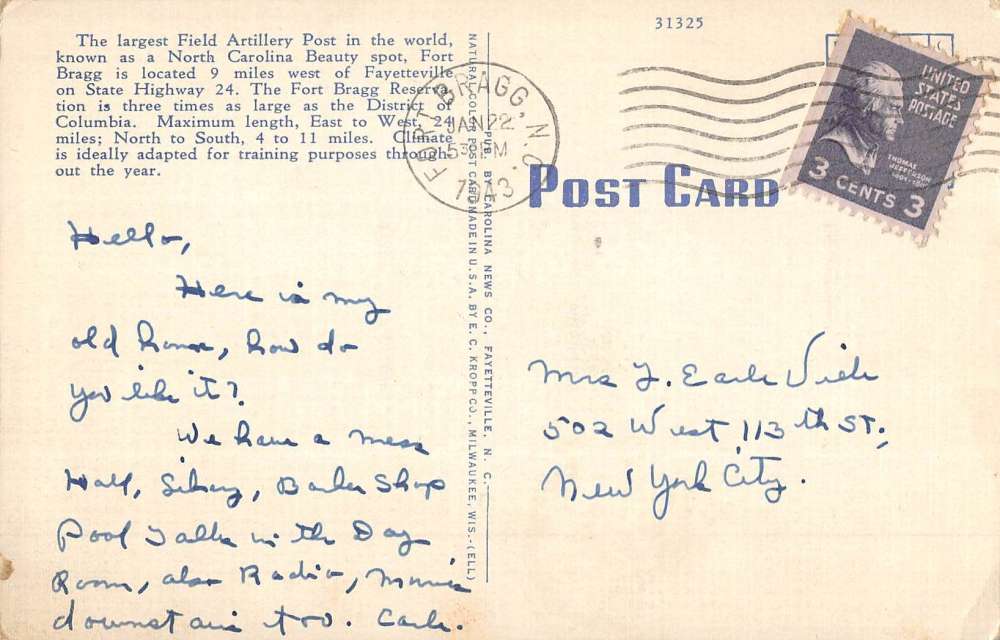 31325
The largest Field Artillery Post in the world,
known as a North Carolina Beauty spot, Fort
Bragg is located 9 miles west of Fayetteville
on State Highway 24. The Fort Bragg Reserva-
tion is three times as large as the District of
Columbia. Maximum length, East to West, 24
miles; North to South, 4 to 11 miles. Climate
is ideally adapted for training purposes through-
out the year.
FORT BRAGG, N.C.
JAN 22
5 PM
1943
UNITED
STATES
POSTAGE
THOMAS
JEFFERSON
3 CENTS 3
POST CARD
PUB. BY CAROLINA NEWS CO., FAYETTEVILLE, N. C.
NATURAL COLOR POST CARD MADE IN U.S.A. BY E. C. KROPP CO., MILWAUKEE, WIS.-(ELL)
Hello,
Here is my
old home, how do
you like it?
We have a mess
Hall, Library, Barber Shop
Pool Table in the Day
Room, also Radio, Movie
downstairs too. Earle.
Mrs F. Earle Viele
502 West 113th ST.,
New York City.